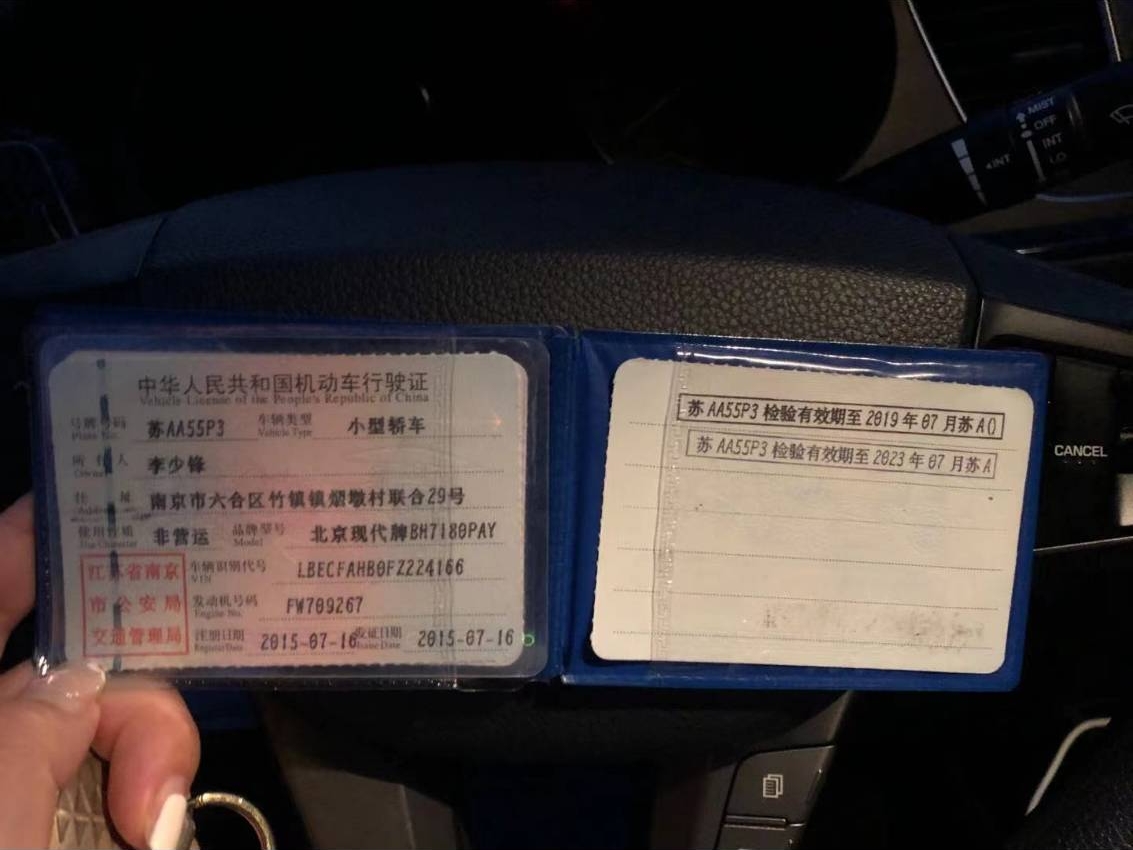 中华人民共和国机动车行驶证
Vehicle License of the People's Republic of China
号牌号码 苏AA55P3 车辆类型 小型轿车
Plate No. Vehicle Type
所有人 李少锋
Owner
住 南京市六合区竹镇镇 墩村联合29号
Address
使用性质 非营运 品牌型号 北京现代牌BH7180PAY
Use Character Model
江苏省南京
市公安局
交通管理局
车辆识别代号 LBECFAHB0FZ224166
VIN
发动机号码 FW709267
Engine No.
注册日期 2015-07-16 发证日期 2015-07-16
Register Date Issue Date
苏AA55P3 检验有效期至 2019 年 07 月苏A()
苏AA55P3 检验有效期至 2023 年 07 月苏A
MIST
OFF
INT
INT
LO
CANCEL